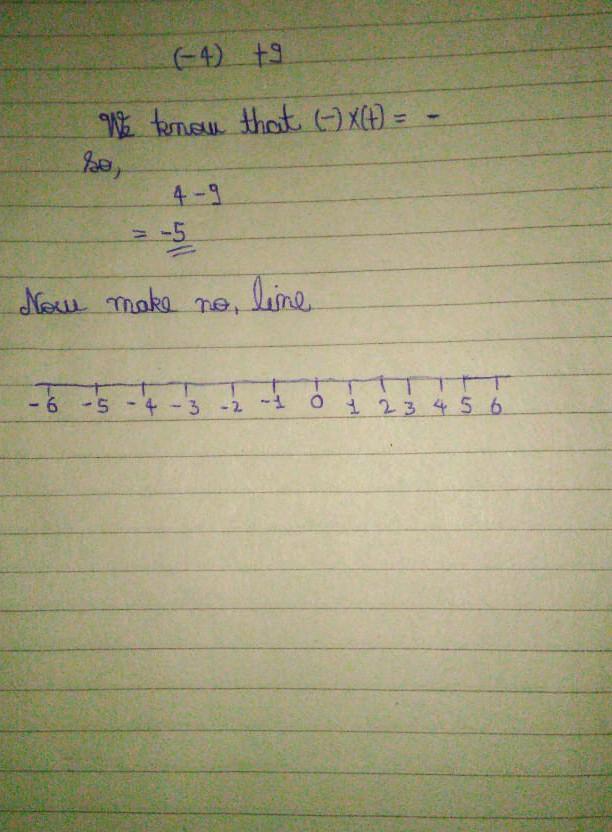 (-4) +9
We know that (-)×(+) = -
So,
4-9
= -5
Now make no, line
-6 -5 -4 -3 -2 -1 0 1 2 3 4 5 6